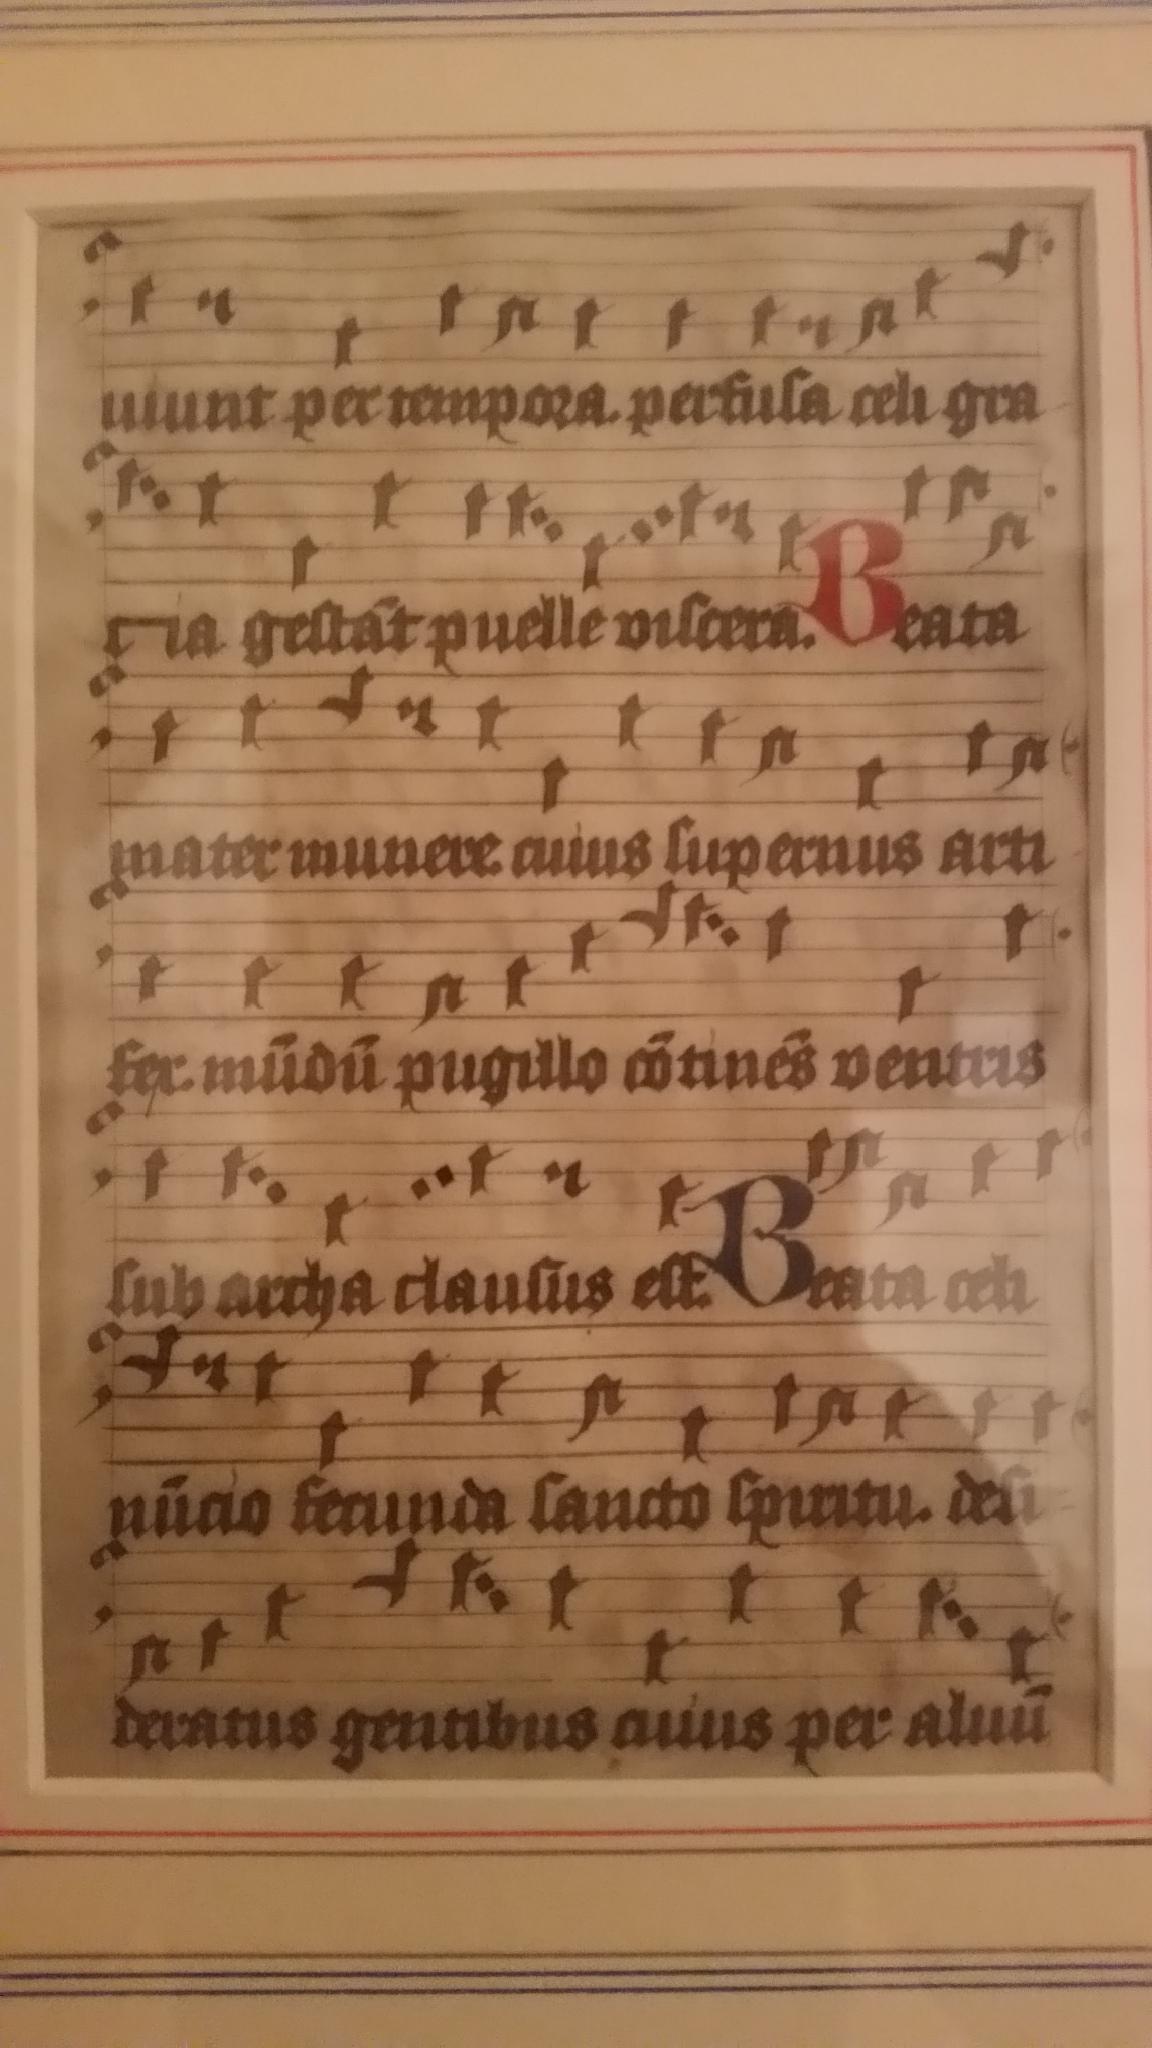 uiunt per tempora. perfusa celi gra
cia gestāt puelle viscera. Beata
mater munere cuius supernus arti
fex. mūdū pugillo cōtinēs ventris
sub archa clausus est. Beata celi
nūcio fecunda sancto spiritu. desi
deratus gentibus cuius per aluū